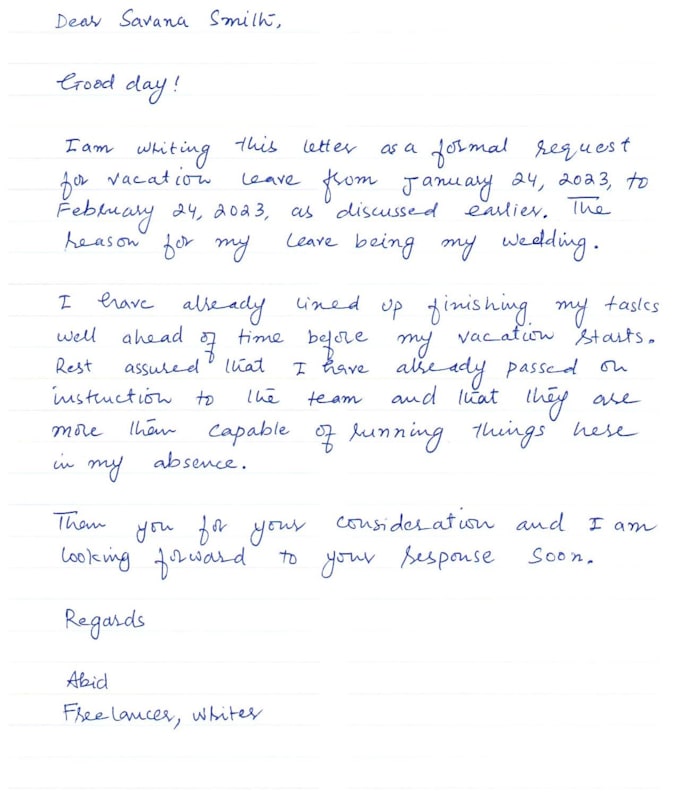 Dear Savana Smith,
Good day!
I am writing this letter as a formal request
for vacation leave from January 24, 2023, to
February 24, 2023, as discussed earlier. The
reason for my leave being my wedding.
I have already lined up finishing my tasks
well ahead of time before my vacation starts.
Rest assured that I have already passed on
instruction to the team and that they are
more than capable of running things here
in my absence.
Than you for your consideration and I am
looking forward to your response soon.
Regards
Abid
Freelancer, writer